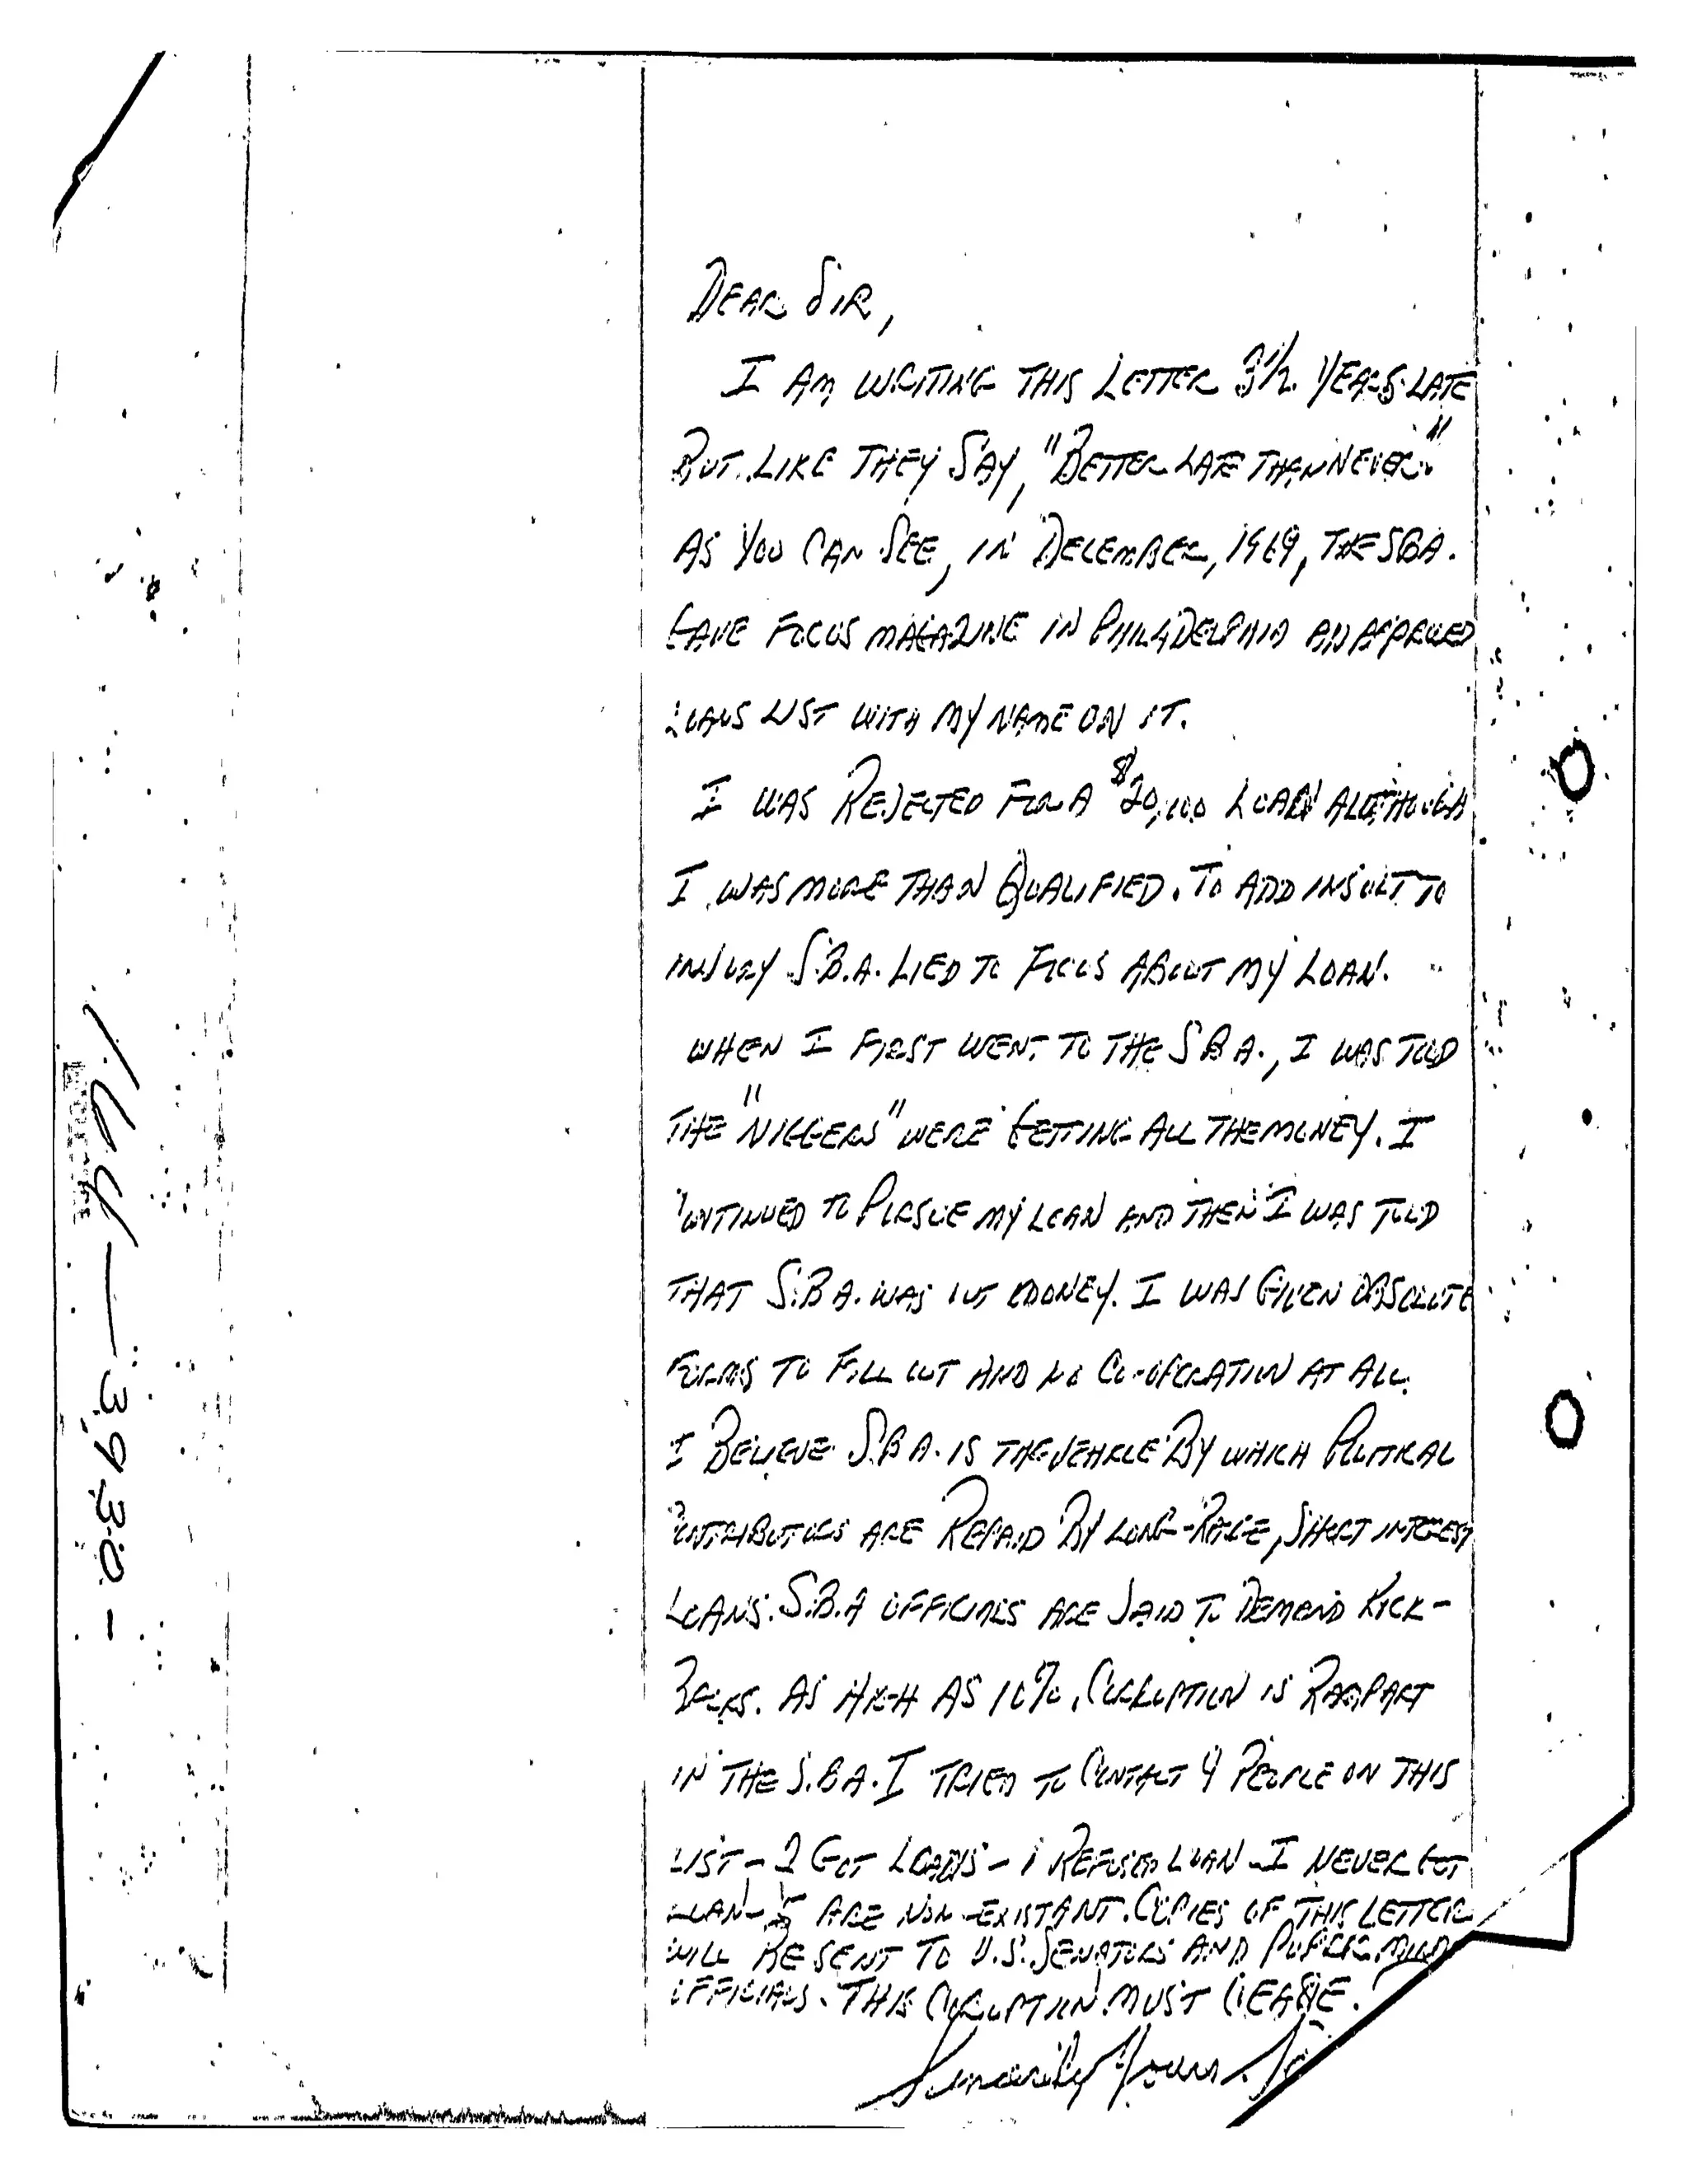 DEAR SIR,
I AM WRITING THIS LETTER 3 1/2 YEARS LATE
BUT LIKE THEY SAY, "BETTER LATE THAN NEVER."
AS YOU CAN SEE, IN DECEMBER, 1969, THE SBA.
GAVE FOCUS MAGAZINE IN PHILADELPHIA AN APPROVED
LOANS LIST WITH MY NAME ON IT.
I WAS REJECTED FOR A $20,000 LOAN ALTHOUGH
I WAS MORE THAN QUALIFIED. TO ADD INSULT TO
INJURY S.B.A. LIED TO FOCUS ABOUT MY LOAN.
WHEN I FIRST WENT TO THE S B A., I WAS TOLD
THE "NIGGERS" WERE GETTING ALL THE MONEY. I
CONTINUED TO PURSUE MY LOAN AND THEN I WAS TOLD
THAT S.B A. WAS OUT MONEY. I WAS GIVEN OBSOLUTE
FORMS TO FILL OUT AND NO CO-OPERATION AT ALL.
I BELIEVE S.B A. IS THE VEHICLE BY WHICH POLITICAL
CONTRIBUTORS ARE REPAID BY LONG-RANGE, SHORT INTEREST
LOANS. S.B.A OFFICIALS ARE SAID TO DEMAND KICK-
BACKS. AS HIGH AS 10%. CORRUPTION IS RAMPART
IN THE S.B A. I TRIED TO CONTACT 9 PEOPLE ON THIS
LIST - 2 GOT LOANS - 1 REFUSED LOAN - I NEVER GOT
LOAN - 5 ARE NON-EXISTANT. COPIES OF THIS LETTER
WILL BE SENT TO U.S. SENATORS AND PUBLIC
OFFICIALS. THIS CORUPTION MUST CEASE.
Sincerily Yours
166-3930-